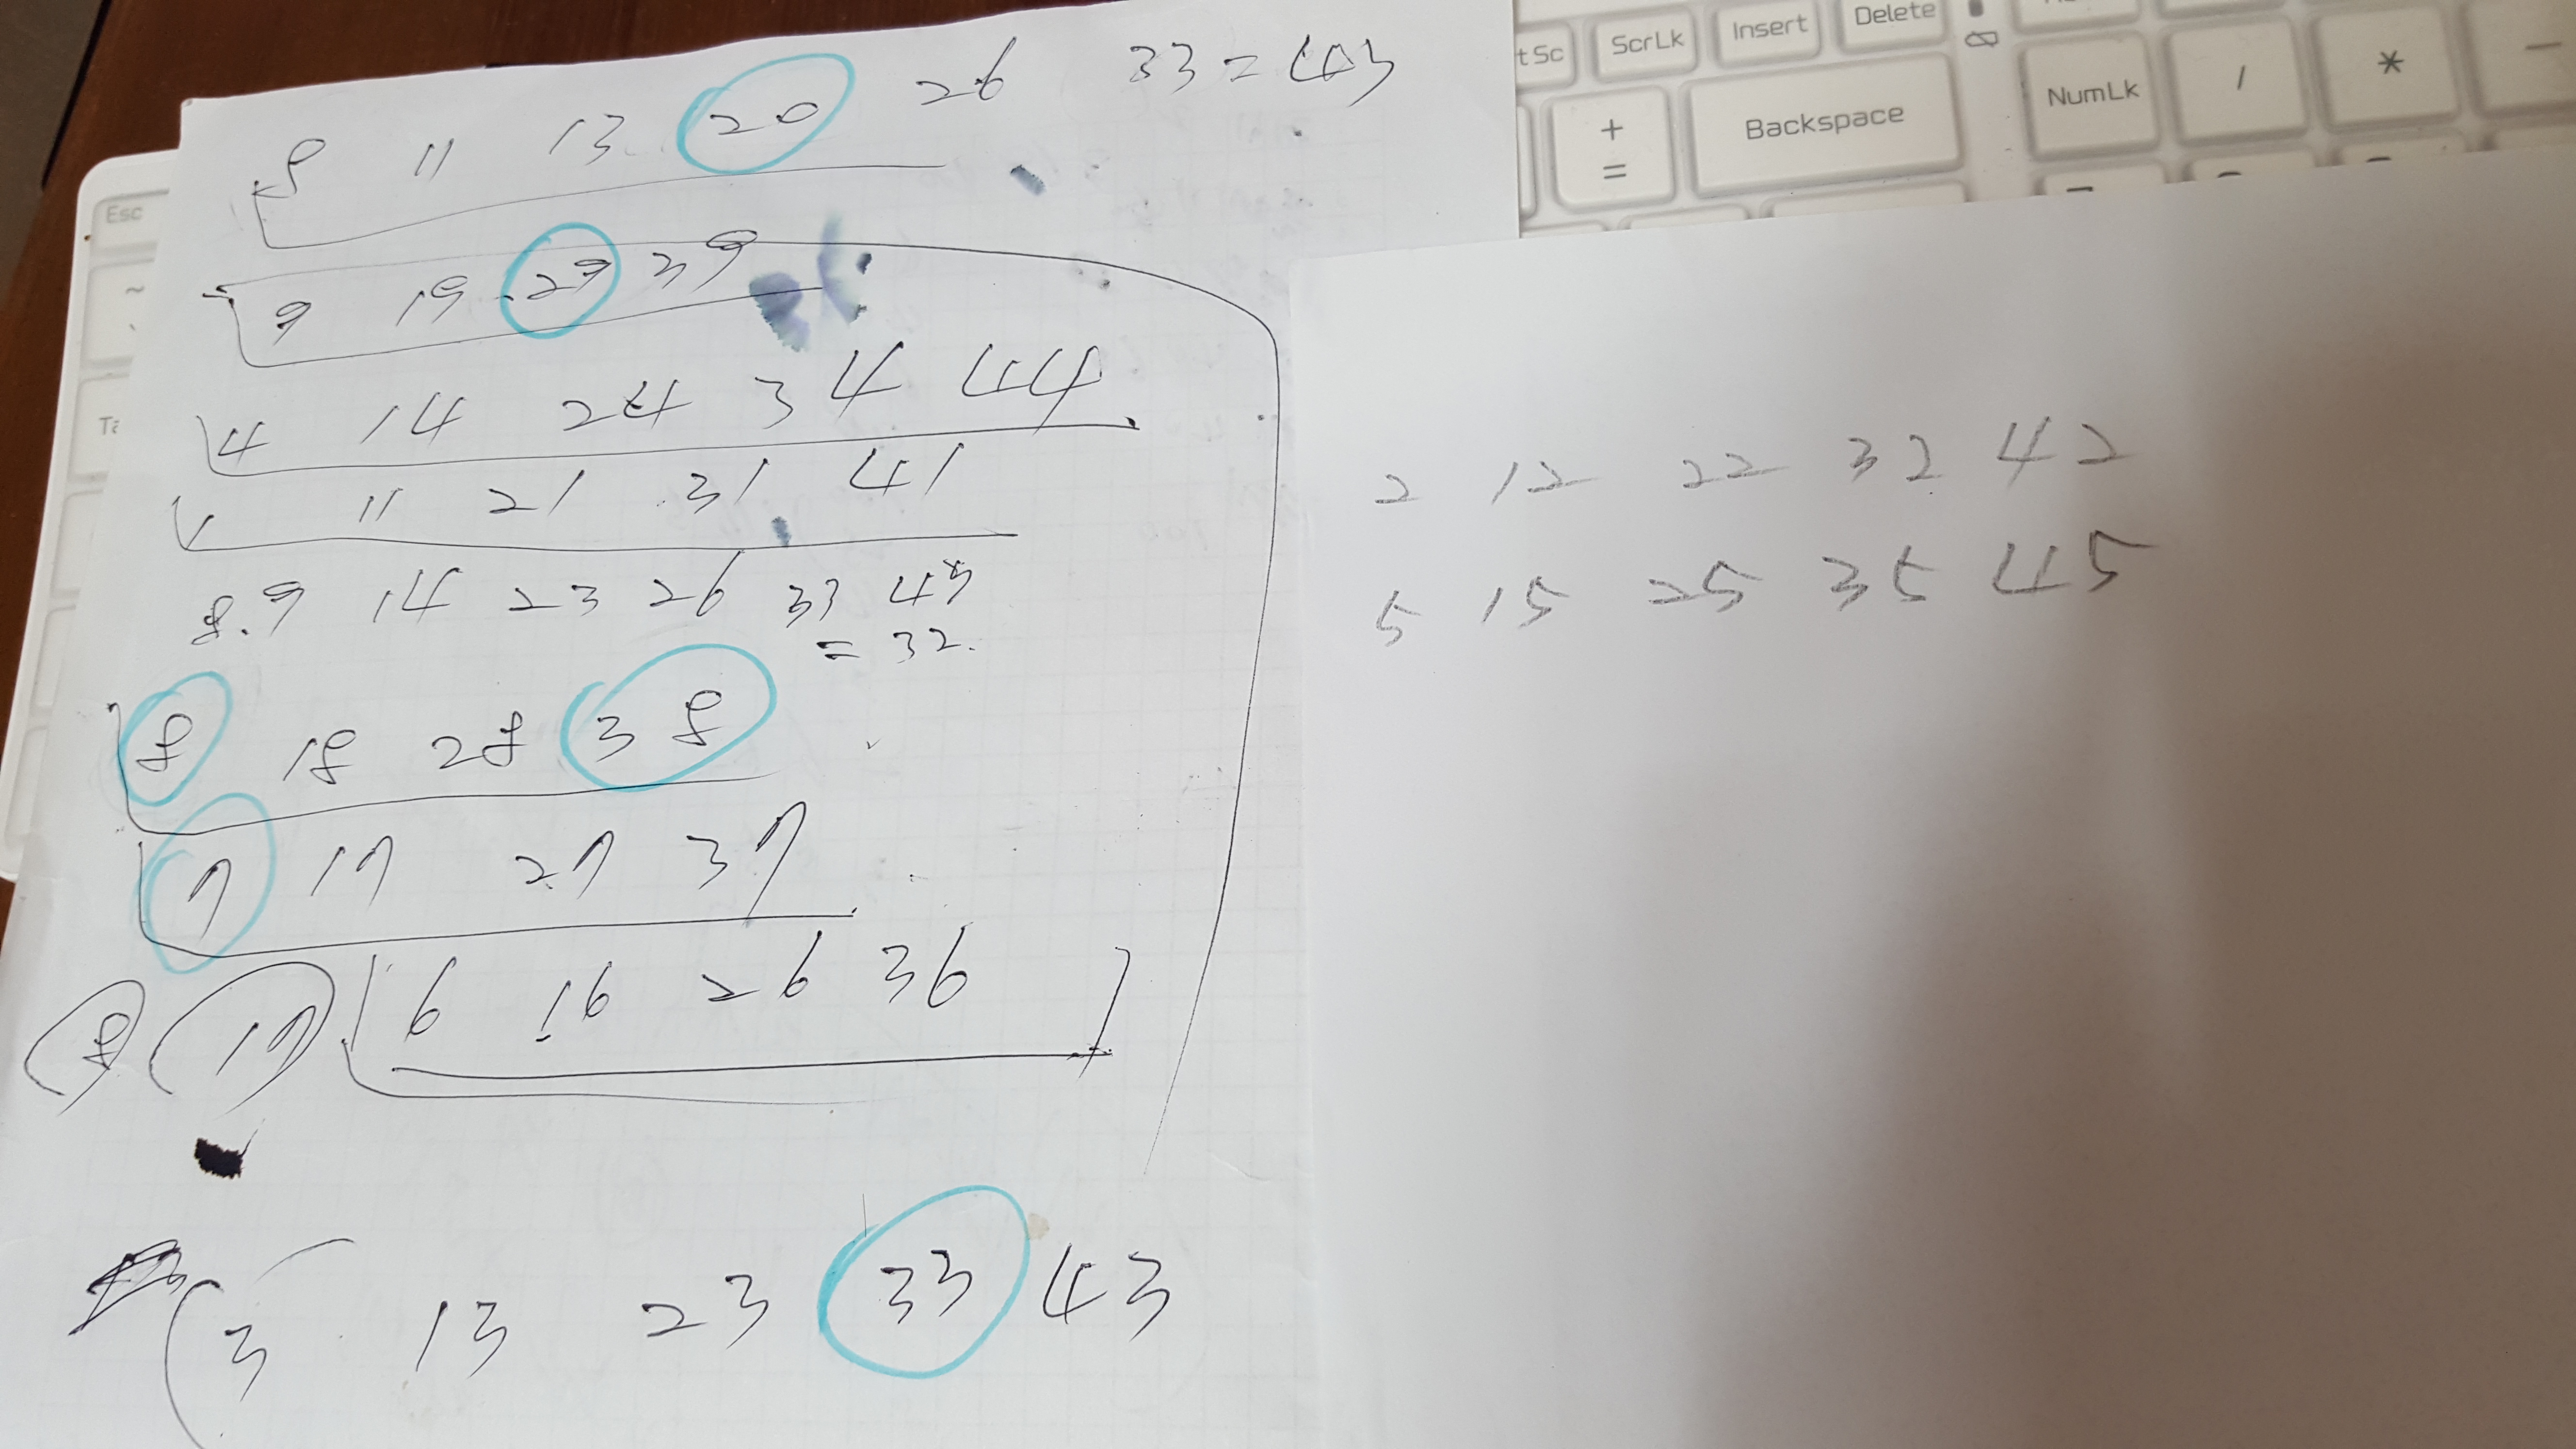 8 11 13 20 26 33 = 43
9 19 29 39
4 14 24 34 44
1 11 21 31 41
8.9 14 23 26 33 43
= 32.
8 18 28 38
7 17 27 37
8 17 6 16 26 36
3 13 23 33 43
2 12 22 32 42
5 15 25 35 45
t Sc ScrLk Insert Delete
+ = Backspace NumLk / * -
Esc
~